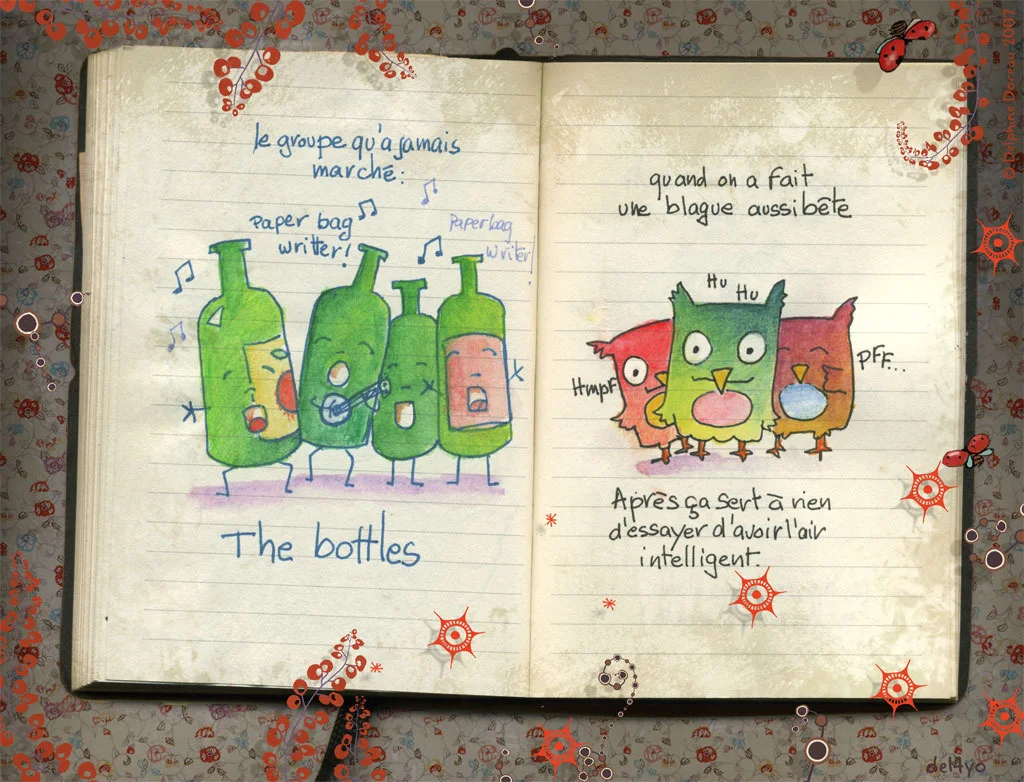 le groupe qu'a jamais
marché:
Paper bag
writter!
Paperbag
writer!
The bottles
quand on a fait
une blague aussi bête
Hu
Hu
Hmpf
PFF...
Après ça sert à rien
d'essayer d'avoir l'air
intelligent.
del4yo